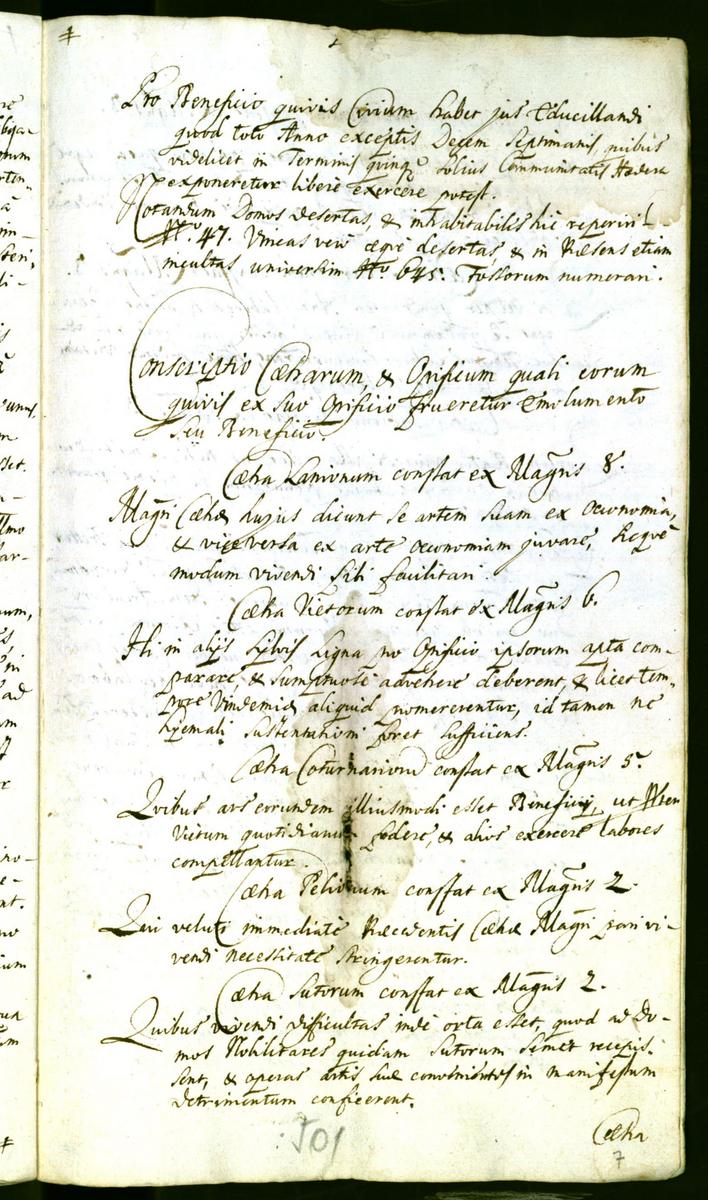 Pro Beneficio quivis Civium habet jus Educillandi
quod toto Anno exceptis Decem Septimanis, quibus
videlicet in Terminis quinqᵉ solius Communitatis Hedera
exponeretur libere exercere potest.
Notandum Domos desertas, & inhabitabiles hic reperiri
Nᵒ. 47. Vineas vero aeque desertas, & in Praesens etiam
incultas universim Nᵒ 645. Fossorum numerari.
Conscriptio Caeharum, & Opificum quali eorum
quivis ex suo Opificio frueretur Emolumento
seu Beneficio.
Caeha Lanionum constat ex Magris 8.
Magri Caehae hujus dicunt se artem suam ex oeconomia,
& vice versa ex arte oeconomiam juvare, sicque
modum vivendi sibi facilitari.
Caeha Vietorum constat ex Magris 6.
Hi in alijs Sylvis Ligna pro Opificio ipsorum apta com-
parare, & sumptuose advehere deberent, & licet tem-
pore Vindemiae aliquid promererentur, id tamen nec
hyemali sustentationi foret sufficiens.
Caeha Coturnariorum constat ex Magris 5.
Quibus ars eorundem illiusmodi esset Beneficij, ut
Victum quotidianum fodere, & alios exercere labores
compellantur.
Caeha Pellionum constat ex Magris 2.
Qui veluti immediate Praecedentis Caehae Magri pari vi-
vendi necessitate stringerentur.
Caeha Sutorum constat ex Magris 2.
Quibus vivendi difficultas inde orta esset, quod ad Do-
mos Nobilitares quidam Sutorum semet recepis-
sent, & operas artis suae in manifestum
detrimentum conficerent.
Caeha
7
501